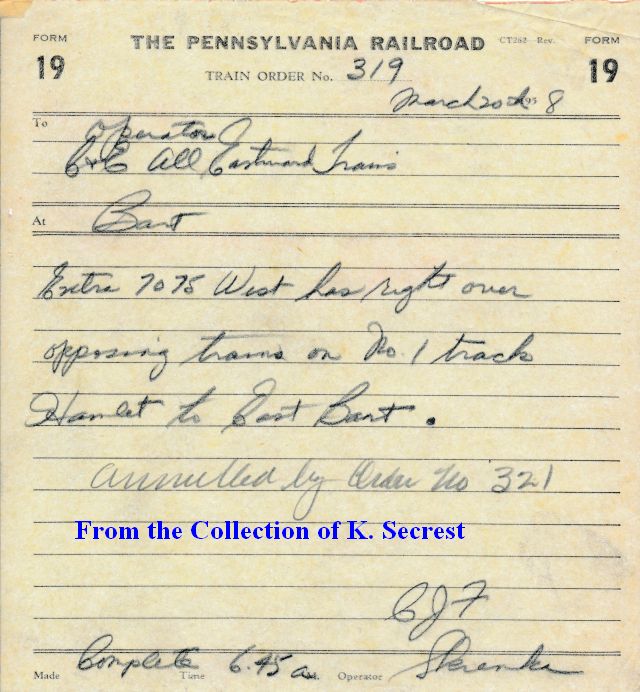 FORM 19
THE PENNSYLVANIA RAILROAD
CT262 Rev.
FORM 19
TRAIN ORDER No. 319
March 20th 1958
To Operator
C&E All Eastward Trains
At Bart
Extra 7075 West has right over
opposing trains on No. 1 track
Hamlet to East Bart.
Annulled by Order No 321
From the Collection of K. Secrest
CJF
Made Complete Time 6.45 a M. Operator